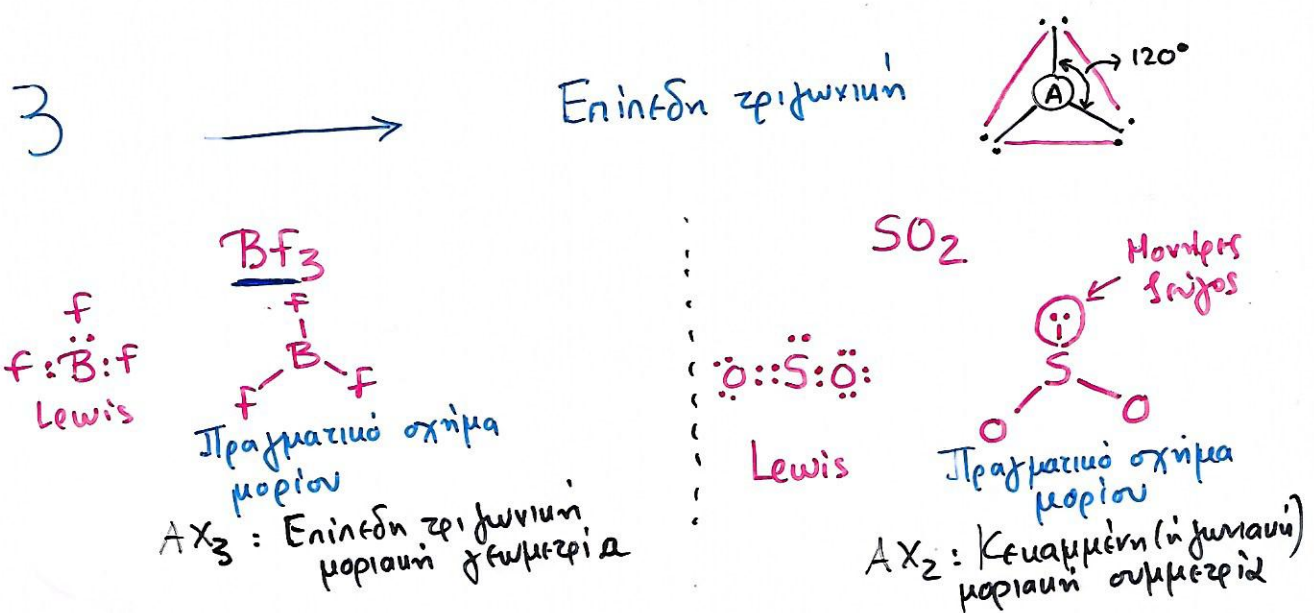 3 → Επίπεδη τριγωνική
A
120°
Bf3
f
f:B:f
Lewis
f
B
f f
Πραγματικό σχήμα
μορίου
AX3: Επίπεδη τριγωνική
μοριακή γεωμετρία
SO2
Μονήρες
ζεύγος
:O::S:O:
Lewis
S
O O
Πραγματικό σχήμα
μορίου
AX2: Κεκαμμένη (ή γωνιακή)
μοριακή συμμετρία